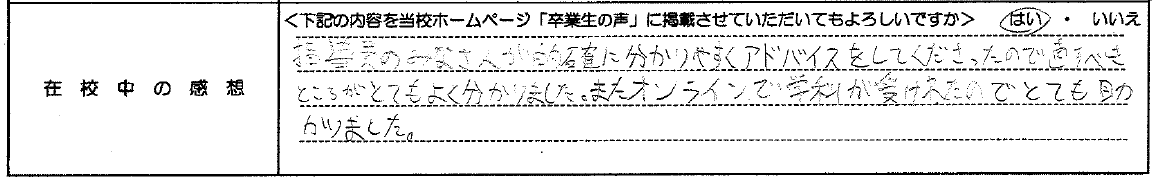 <下記の内容を当校ホームページ「卒業生の声」に掲載させていただいてもよろしいですか> はい ・ いいえ
在校中の感想
指導員のみなさんが的確に分かりやすくアドバイスをしてくださったので直すべき
ところがとてもよく分かりました。またオンラインで学科が受け来たのでとても助
かりました。